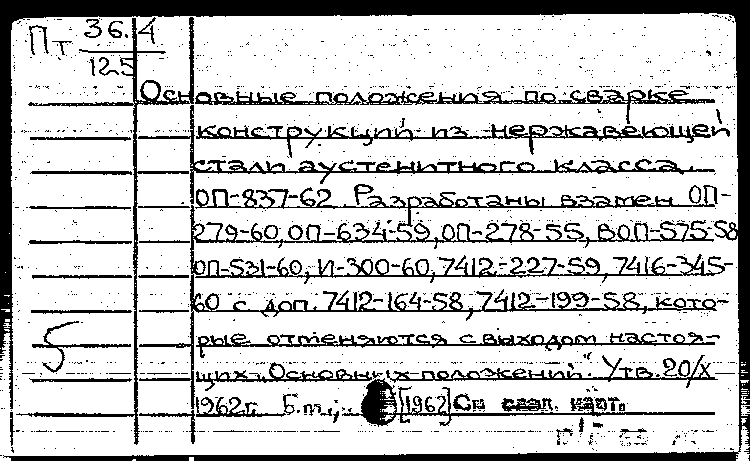 Пт 36.4
125
Основные положения по сварке
конструкций из нержавеющей
стали аустенитного класса.
ОП-837-62. Разработаны взамен ОП-
279-60, ОП-634-59, ОП-278-55, ВОП-575-58
ОП-531-60, И-300-60, 7412-227-59, 7416-345-
60 с доп. 7412-164-58, 7412-199-58, кото-
рые отменяются с выходом настоя-
5
щих „Основных положений". Утв. 20/X
1962г. Б.м., [1962] См след. карт.